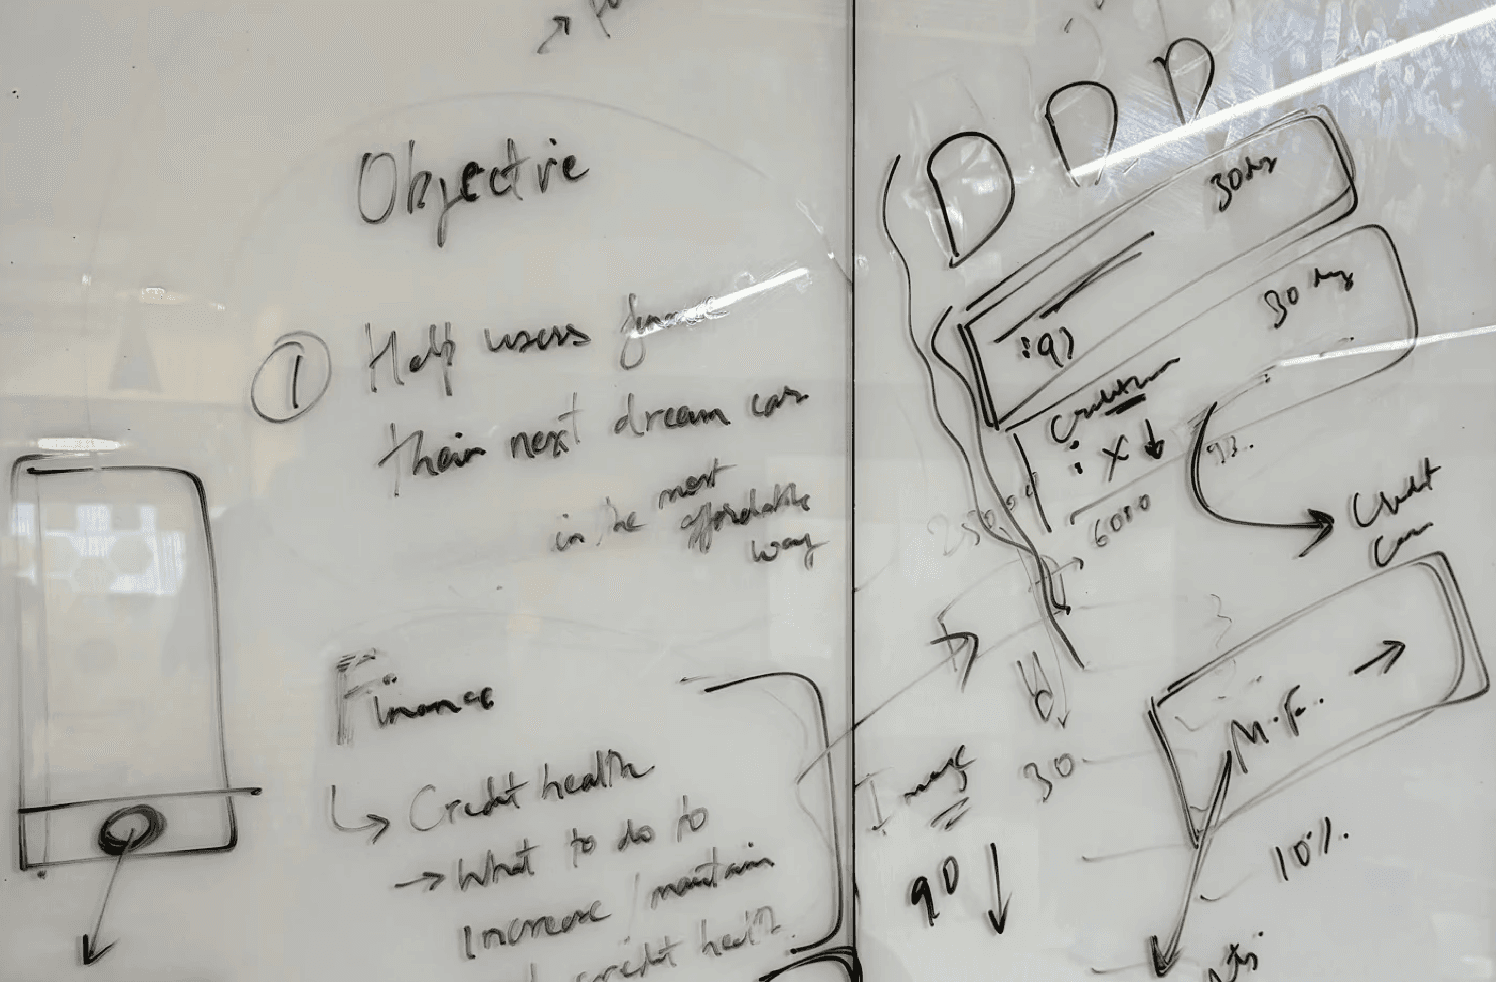 Objective
1 Help users finance
their next dream car
in the most
affordable
way
Finance
Credit health
What to do to
increase / maintain
credit health.
D D D
30
30
:93
: X
93.
6000
250,00
Credit
Image
30
90
M.F.
10%.